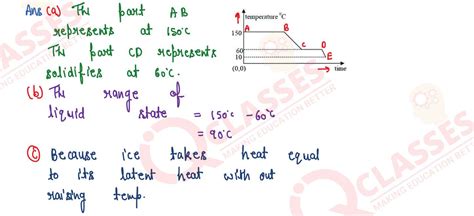 Ans (a) The part AB
represents at 150°C
The part CD represents
solidifies at 60°C.
temperature °C
A B
150
C D
60
10
E
(0,0) time
(b) The range of
liquid state = 150°C - 60°C
= 90°C
(c) Because ice takes heat equal
to its latent heat with out
raising temp.
CLASSES
MAKING EDUCATION BETTER
CLASSES
MAKING EDUCATION BETTER
CLASSES
MAKING EDUCATION BETTER